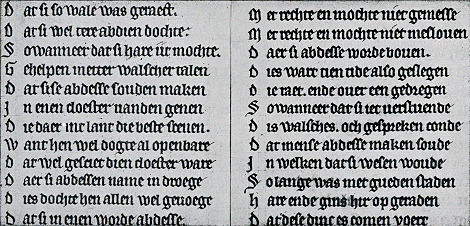 D at si so wale was geraect.
D at si wel tere abdien dochte:
S o wanneer dat si hare iir mochte.
G ehelpen metter walscher talen
D at si se abdesse souden maken
J n enen cloester vanden genen
D ie daer int lant die beste scenen.
W ant hen wel dogte al openbare
D at wel geseiet dien cloester ware
D aer si abdessen name in droege
D ies dochte hen allen wel genoege
D at si in enen worde abdesse.
M et rechte en mochte niet gemesse
M et rechte en mochte niet meslouen
D aer si abdesse worde bouen.
D ies wart tien tide also geslegen
D ie raet. ende ouer een gedregen
S o wanneer dat si iet verstuende
D is walsches. och gespreken conde
D at mense abdesse maken soude
J n welken dat si wesen woude
S o lange was met gueden staden
H are ende gins hir op geraden
D at dese dinc es comen voert